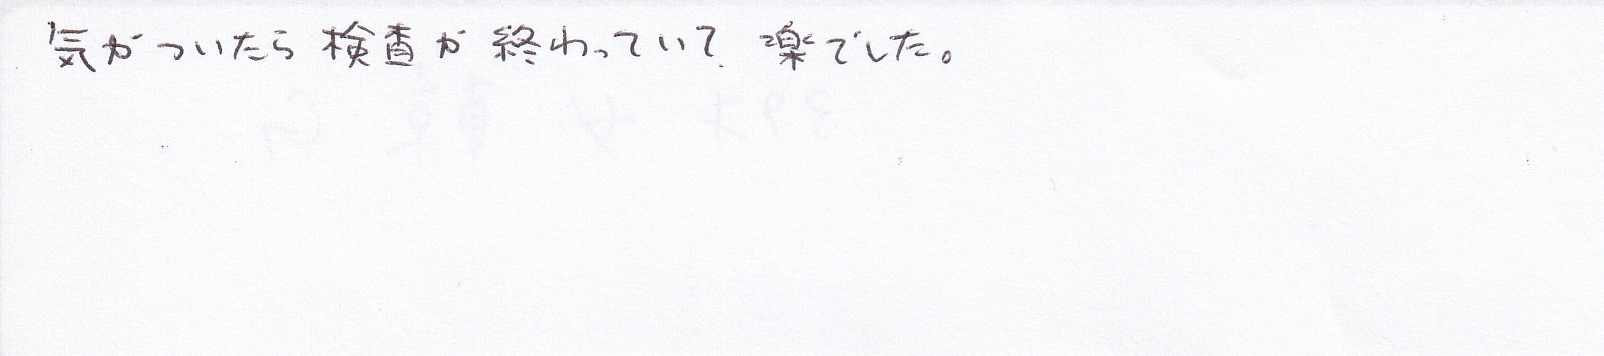 気がついたら検査が終わっていて、楽でした。